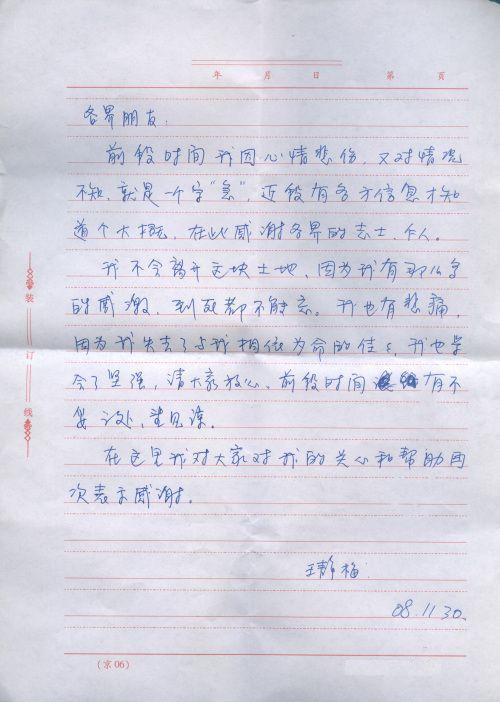 年 月 日 第 页
各界朋友：
前段时间我因心情悲伤，又对情况
不知，就是一个字“急”，近段有各方信息才知
道个大概，在此感谢各界的志士、仁人。
我不会离开这块土地，因为我有那么多
的感激，到死都不能忘。我也有悲痛，
因为我失去了与我相依为命的佳，我也学
会了坚强，请大家放心。前段时间有不
妥之处，望见谅。
在这里我对大家对我的关心和帮助再
次表示感谢。
王静梅
08.11.30.
装订线
(京06)